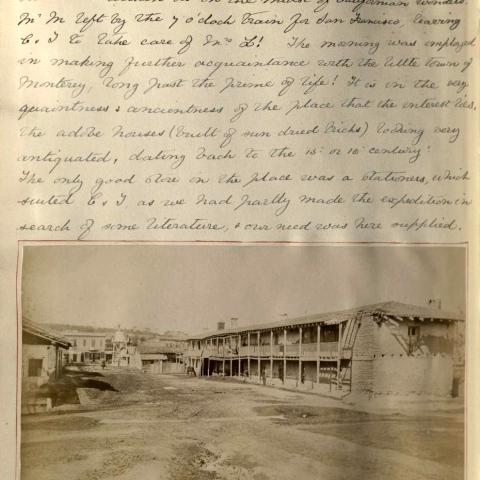 in the midst of Californian wonders.
Mr M left by the 7 o'clock train for San Francisco, leaving
C & I to take care of Mrs L! The morning was employed
in making further acquaintance with the little town of
Monterey, long past the prime of life! It is in the very
quaintness & ancientness of the place that the interest lies,
the adobe houses (built of sun dried bricks) looking very
antiquated, dating back to the 15th or 16th century!
The only good store in the place was a stationers, which
suited C & I as we had partly made the expedition in
search of some literature, & our need was here supplied.